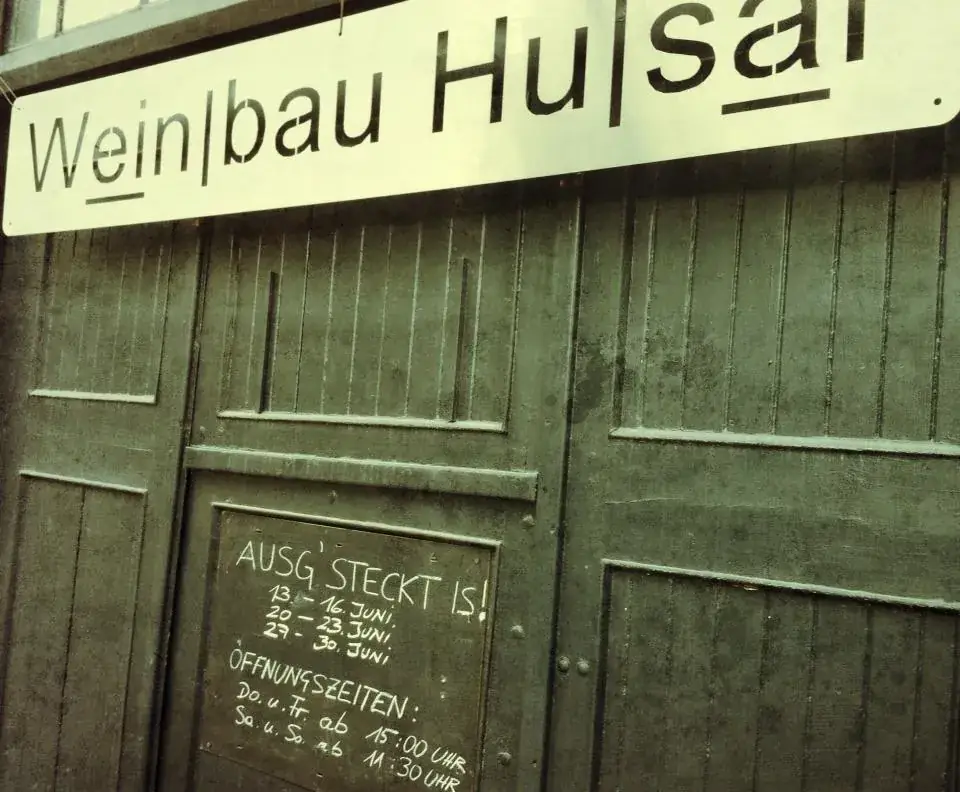 Wein|bau Hu|sar
AUSG'STECKT IS!
13. – 16. JUNI,
20 – 23. JUNI,
27 – 30. JUNI
ÖFFNUNGSZEITEN:
Do. u. Fr. ab 15:00 UHR
Sa. u. So. ab 11:30 UHR